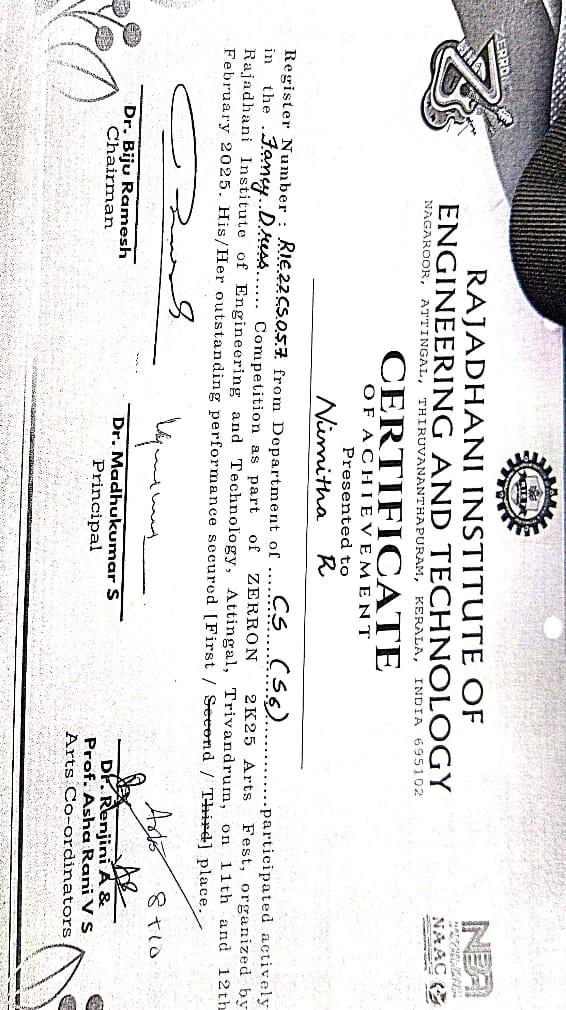 ZERRON
RIET
NBA
NATIONAL BOARD
OF ACCREDITATION
NAAC
RAJADHANI INSTITUTE OF
ENGINEERING AND TECHNOLOGY
NAGAROOR, ATTINGAL, THIRUVANANTHAPURAM, KERALA, INDIA 695102
CERTIFICATE
OF ACHIEVEMENT
Presented to
Nimitha R
Register Number : RIE22CS057 from Department of CS (S6) participated actively
in the Fancy Dress Competition as part of ZERRON 2K25 Arts Fest, organized by
Rajadhani Institute of Engineering and Technology, Attingal, Trivandrum, on 11th and 12th
February 2025. His/Her outstanding performance secured [First / Second / Third] place.
Arts 8+10
Dr. Biju Ramesh
Chairman
Dr. Madhukumar S
Principal
Dr. Renjini A &
Prof. Asha Rani V S
Arts Co-ordinators